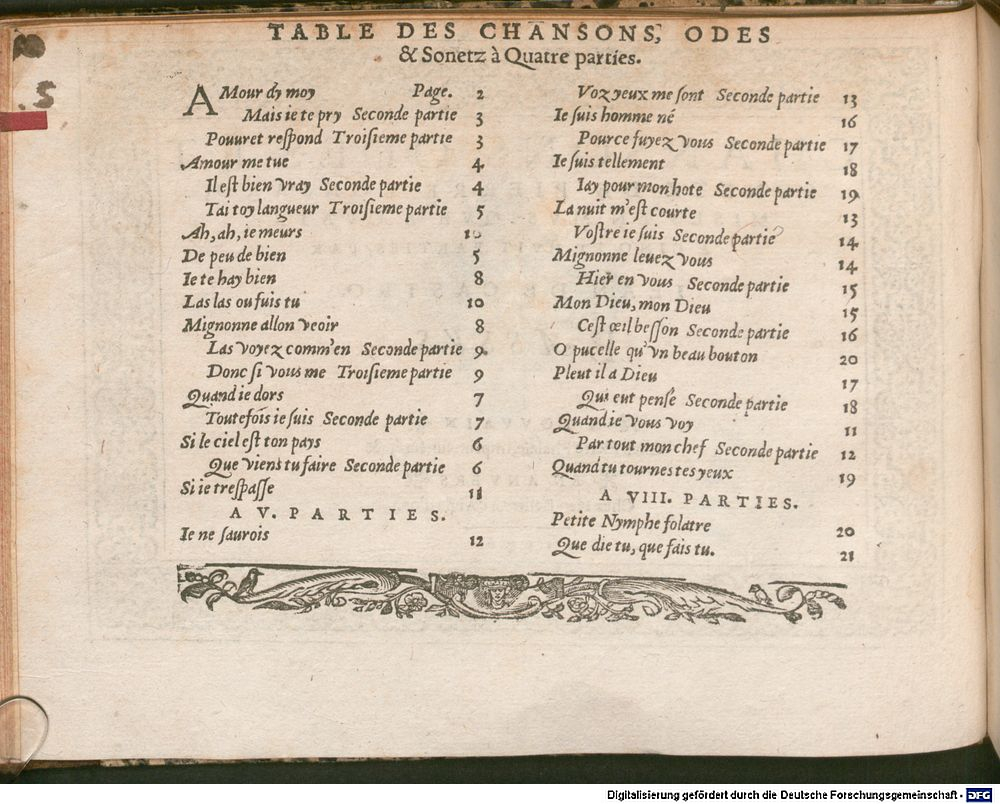 TABLE DES CHANSONS, ODES
& Sonetz à Quatre parties.
AMour dy moy Page. 2
Mais ie te pry Seconde partie 3
Pouuret respond Troisieme partie 3
Amour me tue 4
Il est bien vray Seconde partie 4
Tai toy langueur Troisieme partie 5
Ah, ah, ie meurs 10
De peu de bien 5
Ie te hay bien 8
Las las ou fuis tu 10
Mignonne allon veoir 8
Las voyez comm'en Seconde partie 9
Donc si vous me Troisieme partie 9
Quand ie dors 7
Toutefois ie suis Seconde partie 7
Si le ciel est ton pays 6
Que viens tu faire Seconde partie 6
Si ie trespasse 11
A V. PARTIES.
Ie ne saurois 12
Voz yeux me sont Seconde partie 13
Ie suis homme né 16
Pource fuyez vous Seconde partie 17
Ie suis tellement 18
Iay pour mon hote Seconde partie 19
La nuit m'est courte 13
Vostre ie suis Seconde partie 14
Mignonne leuez vous 14
Hier en vous Seconde partie 15
Mon Dieu, mon Dieu 15
Cest œil besson Seconde partie 16
O pucelle qu'vn beau bouton 20
Pleut il a Dieu 17
Qui eut pense Seconde partie 18
Quand ie vous voy 11
Par tout mon chef Seconde partie 12
Quand tu tournes tes yeux 19
A VIII. PARTIES.
Petite Nymphe folatre 20
Que die tu, que fais tu. 21
.5
Digitalisierung gefördert durch die Deutsche Forschungsgemeinschaft - DFG